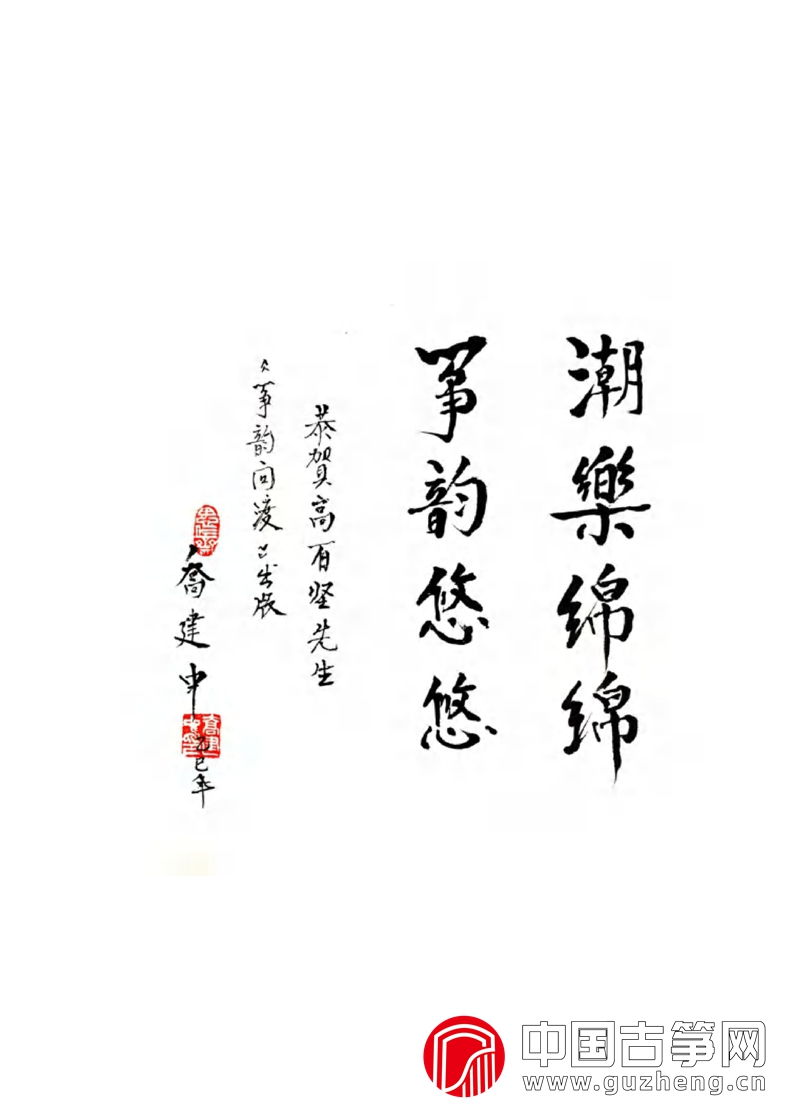 潮樂绵绵
筝韵悠悠
恭贺高百坚先生
《筝韵问渡》出版
喬建中
乙巳年
中国古筝网
www.guzheng.cn